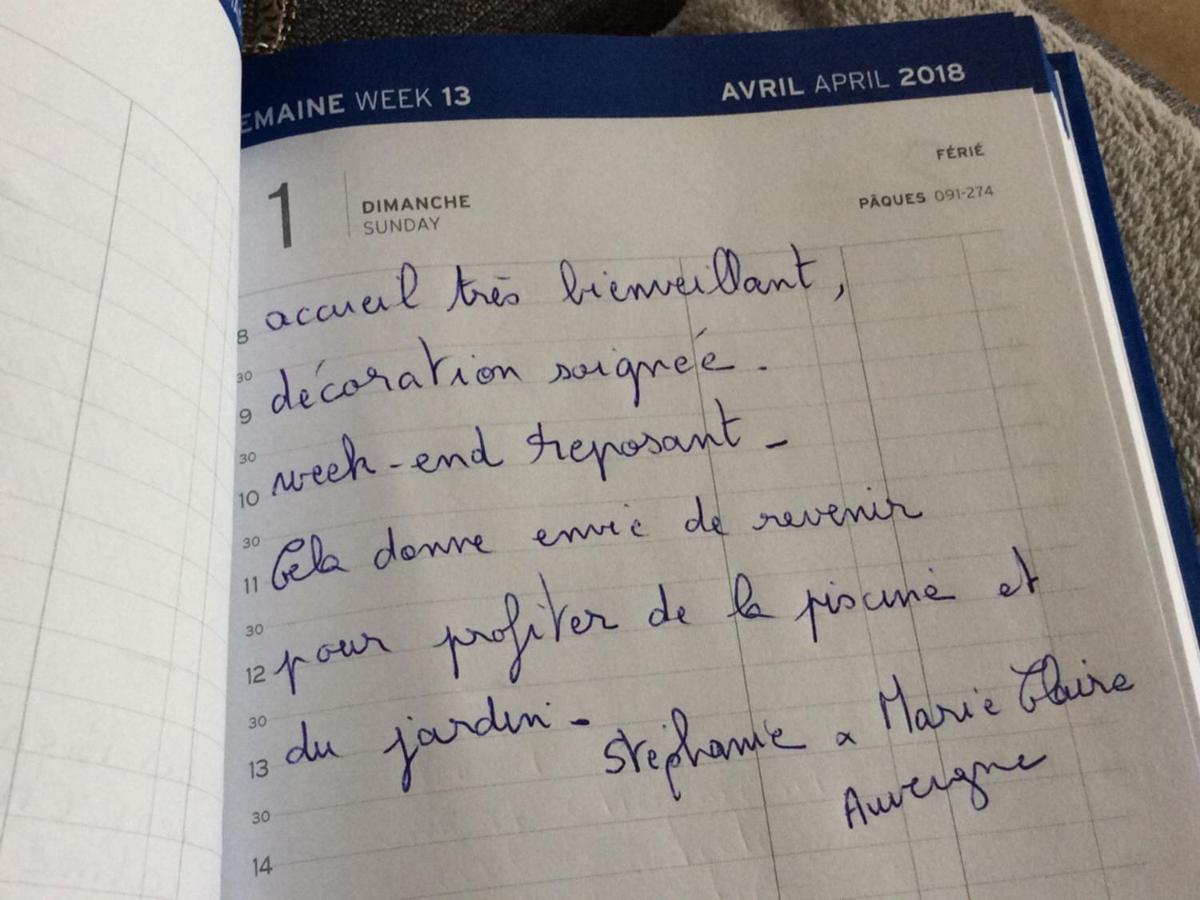 EMAINE WEEK 13
AVRIL APRIL 2018
FÉRIÉ
1
DIMANCHE
SUNDAY
PÂQUES 091-274
8 accueil très bienveillant,
30
9 décoration soignée.
30
10 week-end reposant -
30
11 Cela donne envie de revenir
30
12 pour profiter de la piscine et
30
13 du jardin - Stéphanie & Marie Claire
30
Auvergne
14